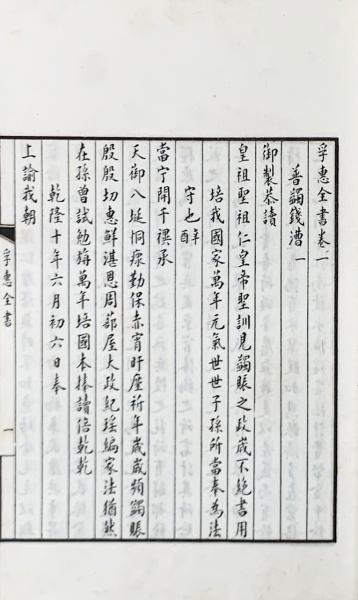 孚惠全書卷一
普蠲錢漕一
御製恭讀
皇祖聖祖仁皇帝聖訓見蠲賑之政歲不絶書用
培我國家萬年元氣世世子孫所當奉為法
守也
當宁開千禩承
天御八埏恫瘝勤保赤宵旰廑祈年歲歲頻蠲賑
殷殷切惠鮮湛恩周蔀屋大政紀瑶編家法猶然
在孫曾試勉旃萬年培國本捧讀倍乾乾
乾隆十年六月初六日奉
上諭我朝
孚惠全書
一